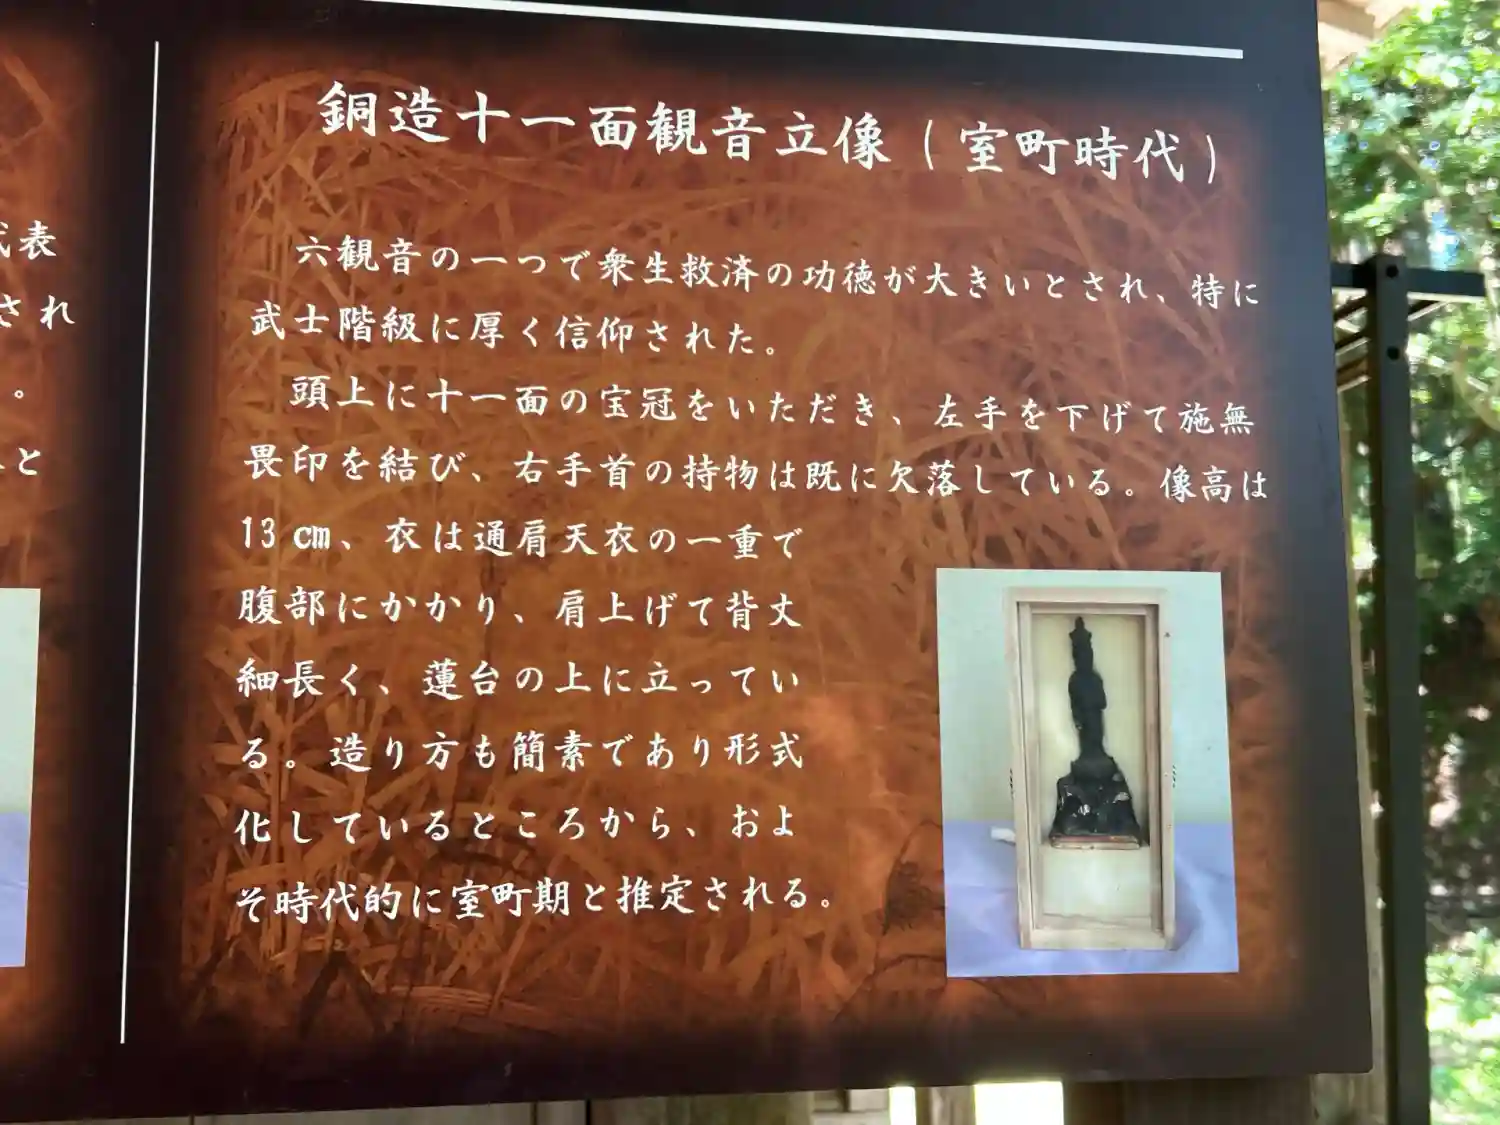 代表
され
。
と
銅造十一面観音立像(室町時代)
六観音の一つで衆生救済の功徳が大きいとされ、特に
武士階級に厚く信仰された。
頭上に十一面の宝冠をいただき、左手を下げて施無
畏印を結び、右手首の持物は既に欠落している。像高は
13cm、衣は通肩天衣の一重で
腹部にかかり、肩上げて背丈
細長く、蓮台の上に立ってい
る。造り方も簡素であり形式
化しているところから、およ
そ時代的に室町期と推定される。